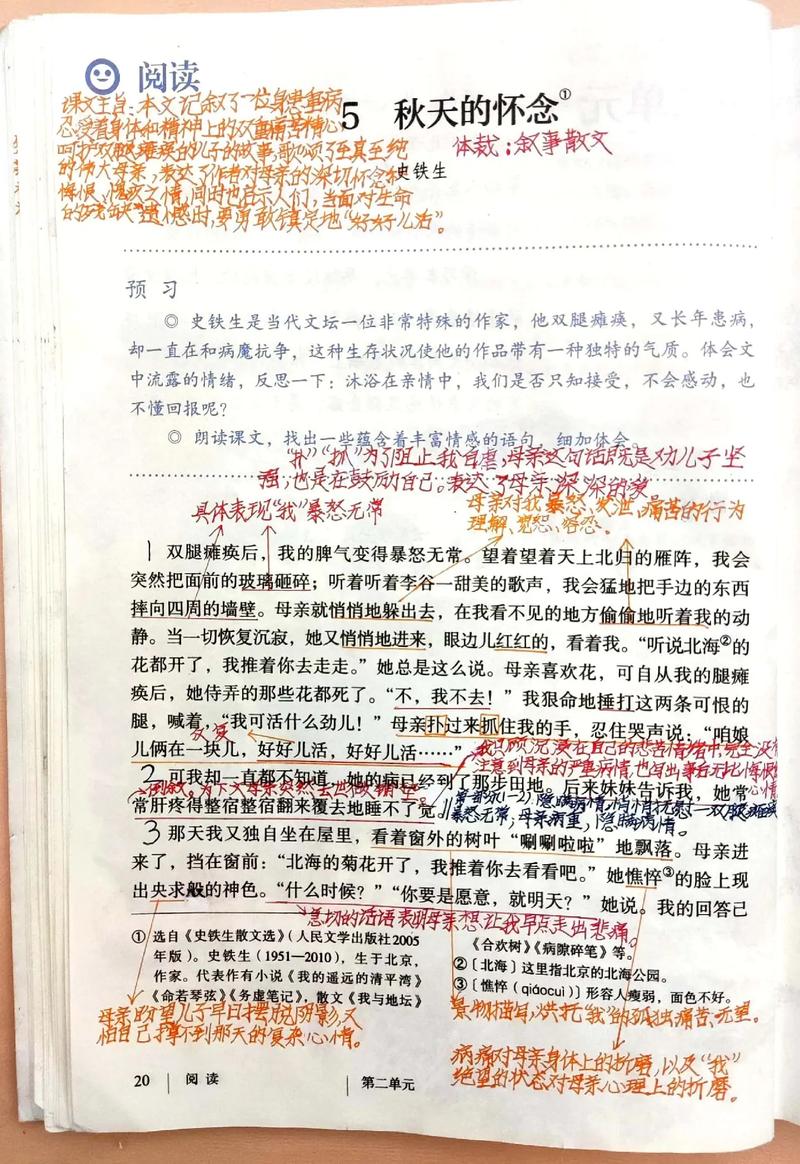 阅读
课文主旨：本文记叙了一位身患重病
忍受着身体和精神上的双重痛苦精心
呵护双腿瘫痪的儿子的故事，歌颂了至真至纯
的伟大母亲，表达了作者对母亲的深切怀念和
悔恨、愧疚之情，同时也启示人们，当面对生命
的残缺、遗憾时，要勇敢镇定地“好好儿活”。
5 秋天的怀念①
体裁：叙事散文
史铁生
预 习
◎ 史铁生是当代文坛一位非常特殊的作家，他双腿瘫痪，又长年患病，
却一直在和病魔抗争，这种生存状况使他的作品带有一种独特的气质。体会文
中流露的情绪，反思一下：沐浴在亲情中，我们是否只知接受，不会感动，也
不懂回报呢？
◎ 朗读课文，找出一些蕴含着丰富情感的语句，细加体会。
“扑”“抓”为了阻止我自虐，母亲这句话既是劝儿子坚
强，也是在鼓励自己。表达了母亲深深的爱
具体表现“我”暴怒无常
母亲对我暴怒、发泄、痛苦的行为
理解、宽恕、容忍。
1 双腿瘫痪后，我的脾气变得暴怒无常。望着望着天上北归的雁阵，我会
突然把面前的玻璃砸碎；听着听着李谷一甜美的歌声，我会猛地把手边的东西
摔向四周的墙壁。母亲就悄悄地躲出去，在我看不见的地方偷偷地听着我的动
静。当一切恢复沉寂，她又悄悄地进来，眼边儿红红的，看着我。“听说北海②的
花都开了，我推着你去走走。”她总是这么说。母亲喜欢花，可自从我的腿瘫
痪后，她侍弄的那些花都死了。“不，我不去！”我狠命地捶打这两条可恨的
腿，喊着，“我可活什么劲儿！”母亲扑过来抓住我的手，忍住哭声说：“咱娘
反复
儿俩在一块儿，好好儿活，好好儿活……”
我只顾沉浸在自己的悲苦情绪中，完全没有
注意到母亲的严重病情，也写出事后无比悔恨
2 可我却一直都不知道，她的病已经到了那步田地。后来妹妹告诉我，她常
倒叙。为下文母亲突然去世做铺垫。
常肝疼得整宿整宿翻来覆去地睡不了觉。
暴怒无常，母亲病重，隐瞒病情。
3 那天我又独自坐在屋里，看着窗外的树叶“唰唰啦啦”地飘落。母亲进
来了，挡在窗前：“北海的菊花开了，我推着你去看看吧。”她憔悴③的脸上现
出央求般的神色。“什么时候？”“你要是愿意，就明天？”她说。我的回答已
急切的话语表明母亲想让我早点走出悲痛。
① 选自《史铁生散文选》（人民文学出版社2005
年版）。史铁生（1951—2010），生于北京，
作家。代表作有小说《我的遥远的清平湾》
《命若琴弦》《务虚笔记》，散文《我与地坛》
《合欢树》《病隙碎笔》等。
②〔北海〕这里指北京的北海公园。
③〔憔悴（qiáocuì）〕形容人瘦弱，面色不好。
母亲盼望儿子早日摆脱阴影，又
怕自己撑不到那天的复杂心情。
景物描写，烘托“我”的孤独痛苦、无望。
病痛对母亲身体上的折磨，以及“我”
绝望的状态对母亲心理上的折磨。
20 阅 读
第二单元